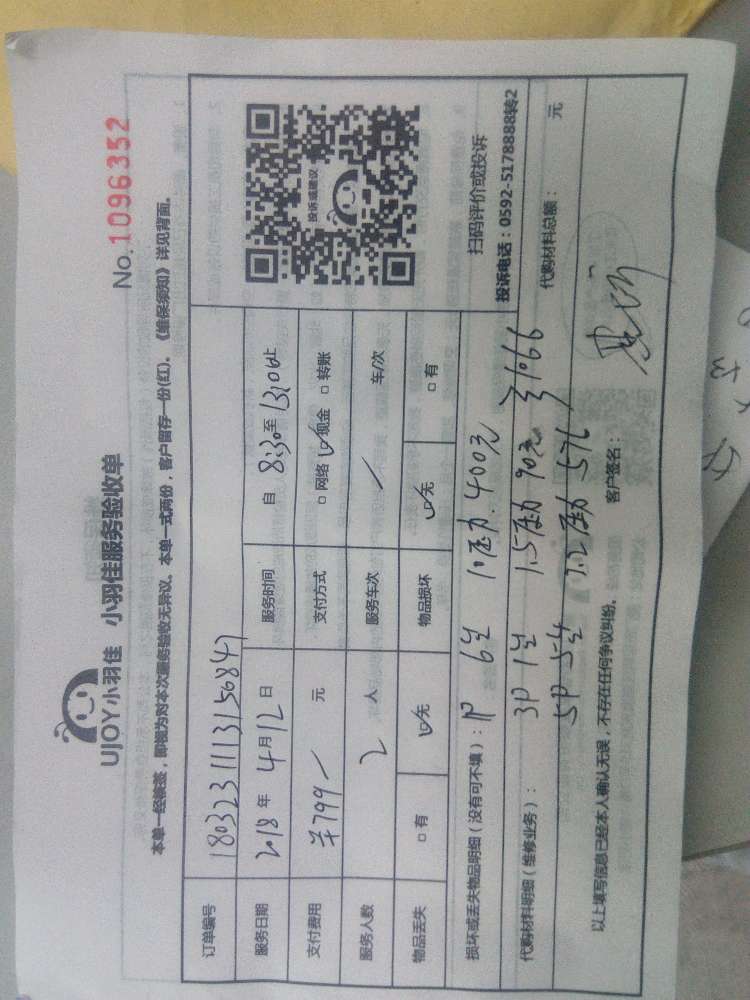 No.1096352
UJOY小羽佳 小羽佳服务验收单
本单一经核签，即视为对本次服务验收无异议。本单一式两份，客户留存一份(红)，《维保须知》详见背面。
订单编号 180323111315684
服务日期 2018年4月12日 服务时间 自8:30至13:10止
支付费用 ¥799 元 支付方式 □网络 ☑现金 □转账
服务人数 2 人 服务车次 / 车/次
物品丢失 □有 ☑无 物品损坏 ☑无 □有
投诉或建议
扫码评价或投诉
投诉电话：0592-5178888转2
损坏或丢失物品明细（没有可不填）：1P 6台 400元
代购材料明细（维修业务）：3P 1台 90元 1066
代购材料总额： 元
5P 5台 576
以上填写信息已经本人确认无误，不存在任何争议纠纷。 客户签名：